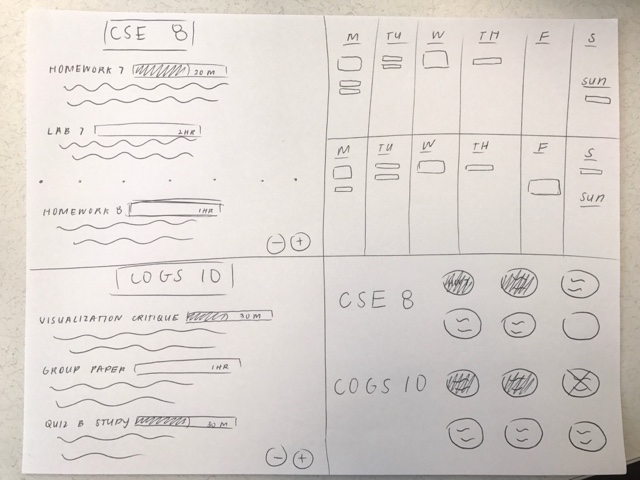 CSE 8
HOMEWORK 7 20 M
LAB 7 2HR
HOMEWORK 8 1HR
- +
M TU W TH F S
SUN
M TU W TH F S
SUN
COGS 10
VISUALIZATION CRITIQUE 30 M
GROUP PAPER 1HR
QUIZ B STUDY 30 M
- +
CSE 8
COGS 10